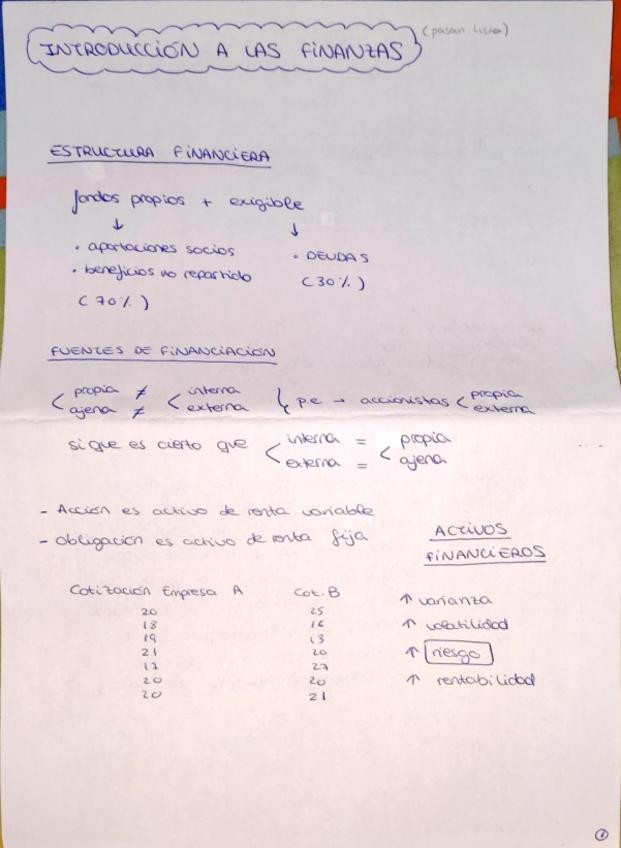 INTRODUCCIÓN A LAS FINANZAS (pasan lista)
ESTRUCTURA FINANCIERA
fondos propios + exigible
↓ ↓
• aportaciones socios • DEUDAS
• beneficios no repartido (30%)
(70%)
FUENTES DE FINANCIACIÓN
< propia ≠ < interna { p.e → accionistas < propia
ajena ≠ externa externa
si que es cierto que < interna = < propia
externa = ajena
- Acción es activo de renta variable
- Obligación es activo de renta fija
ACTIVOS
FINANCIEROS
Cotización Empresa A Cot. B
20 25
18 16
19 13
21 20
17 27
20 20
20 21
↑ varianza
↑ volatilidad
↑ riesgo
↑ rentabilidad
1